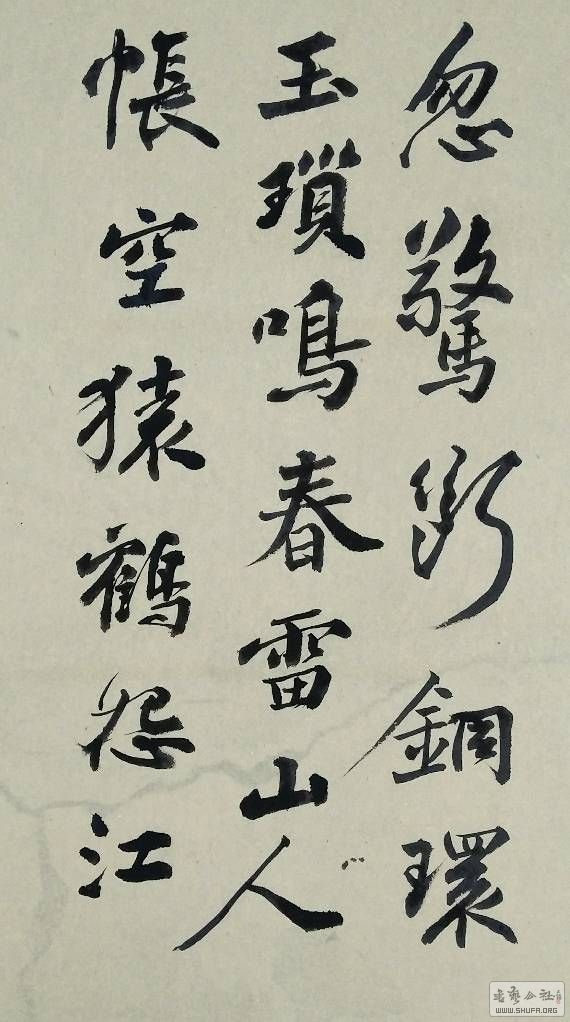 忽驚断銅環
玉瑣鳴春雷山人
帳空猿鶴怨江
書藝公社
WWW.SHUFA.ORG